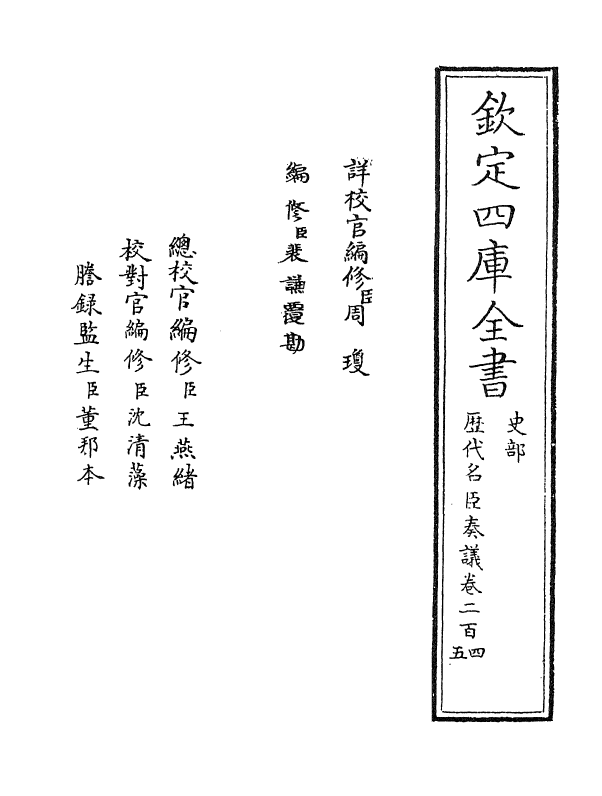 欽定四庫全書
史部
歴代名臣奏議卷二百四五
詳校官編修臣周瓊
編修臣裴謙覆勘
總校官編修臣王燕緒
校對官編修臣沈清藻
謄録監生臣董邦本